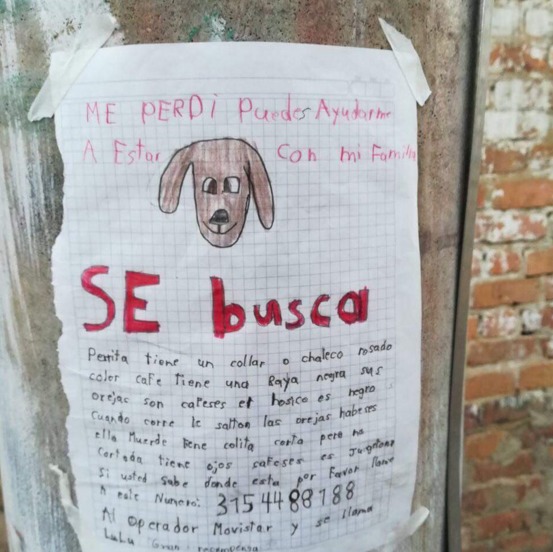 ME PERDI Puedes Ayudarme
A Estar con mi Familia
SE busca
Perrita tiene un collar o chaleco rosado
color cafe tiene una Raya negra sus
orejas son cafeses el hosico es negro
cuando corre le saltan las orejas habeses
ella Muerde tiene colita corta pero no
cortada tiene ojos cafeses es Jugetona
Si usted sabe donde esta por Favor llame
A este Numero: 315 4488188
Al operador Movistar y se llama
LuLu Gran recompensa